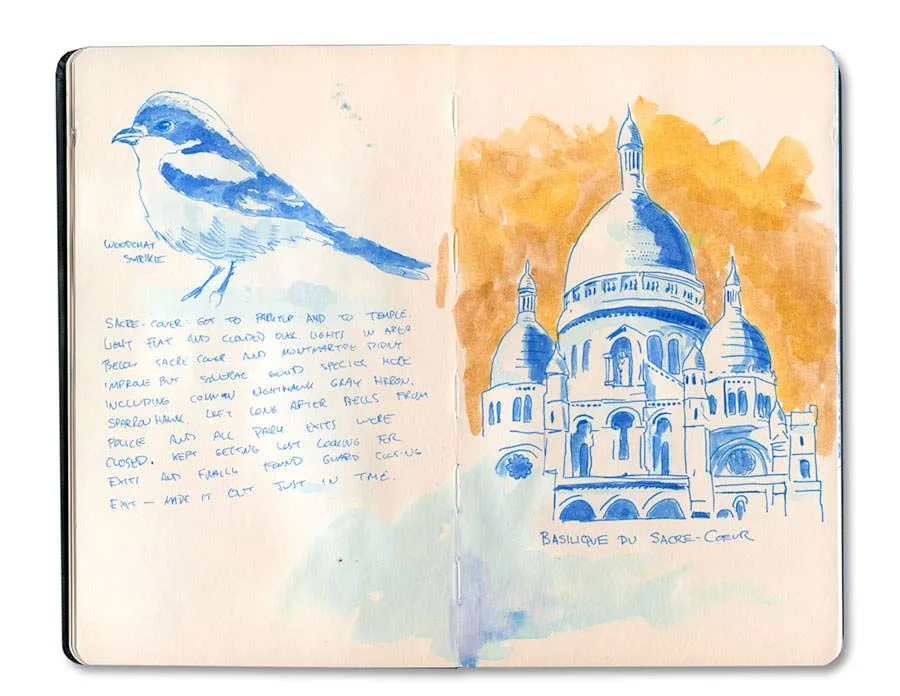 WOODCHAT
SHRIKE
SACRE-COUER: GOT TO PARKTOP AND TO TEMPLE.
LIGHT FLAT AND CLOUDED OVER. LIGHTS IN AREA
BELOW SACRE COUER AND MONTMARTRE DIDNT
IMPROVE BUT SEVERAL GOOD SPECIES MORE
INCLUDING COMMON NIGHTHAWK GRAY HERON,
SPARROWHAWK. LEFT LONG AFTER BELLS FROM
POLICE AND ALL PARK EXITS WERE
CLOSED. KEPT GETTING LOST LOOKING FOR
EXITS AND FINALLY FOUND GUARD CLOSING
EXIT — MADE IT OUT JUST IN TIME.
BASILIQUE DU SACRE-COEUR